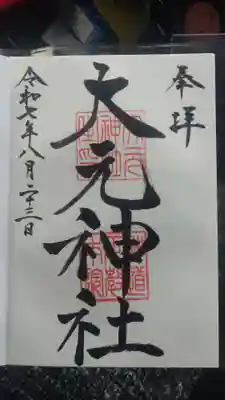 奉拝
天元神社
令和七年八月二十三日